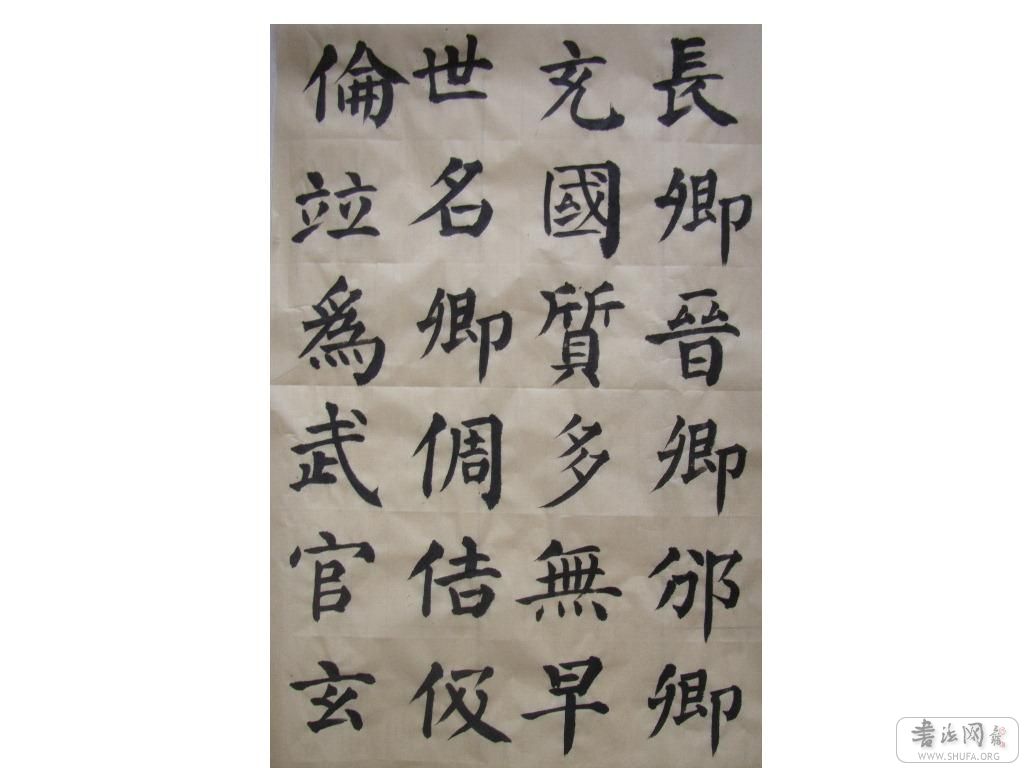 長卿晉卿邠卿
充國質多無早
世名卿倜佶伋
倫竝爲武官玄
書法网
WWW.SHUFA.ORG